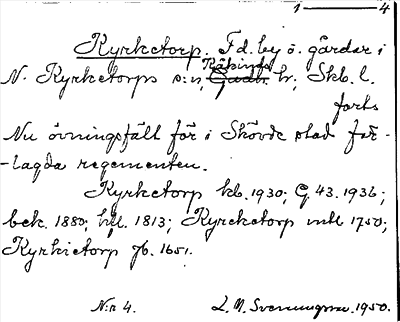 1 ——— 4
Kyrketorp. F.d. by o. gårdar i
N. Kyrketorps s:n, Kåkinds hr, Skb. l.
forts
Nu övningsfält för i Skövde stad för-
-lagda regementen.
Kyrketorp kb. 1930; G. 43. 1936;
bek. 1880; hfl. 1813; Kyrcketorp mtl 1750;
Kyrkietorp jb. 1651.
N:r 4. L. M. Svenungsson. 1950.